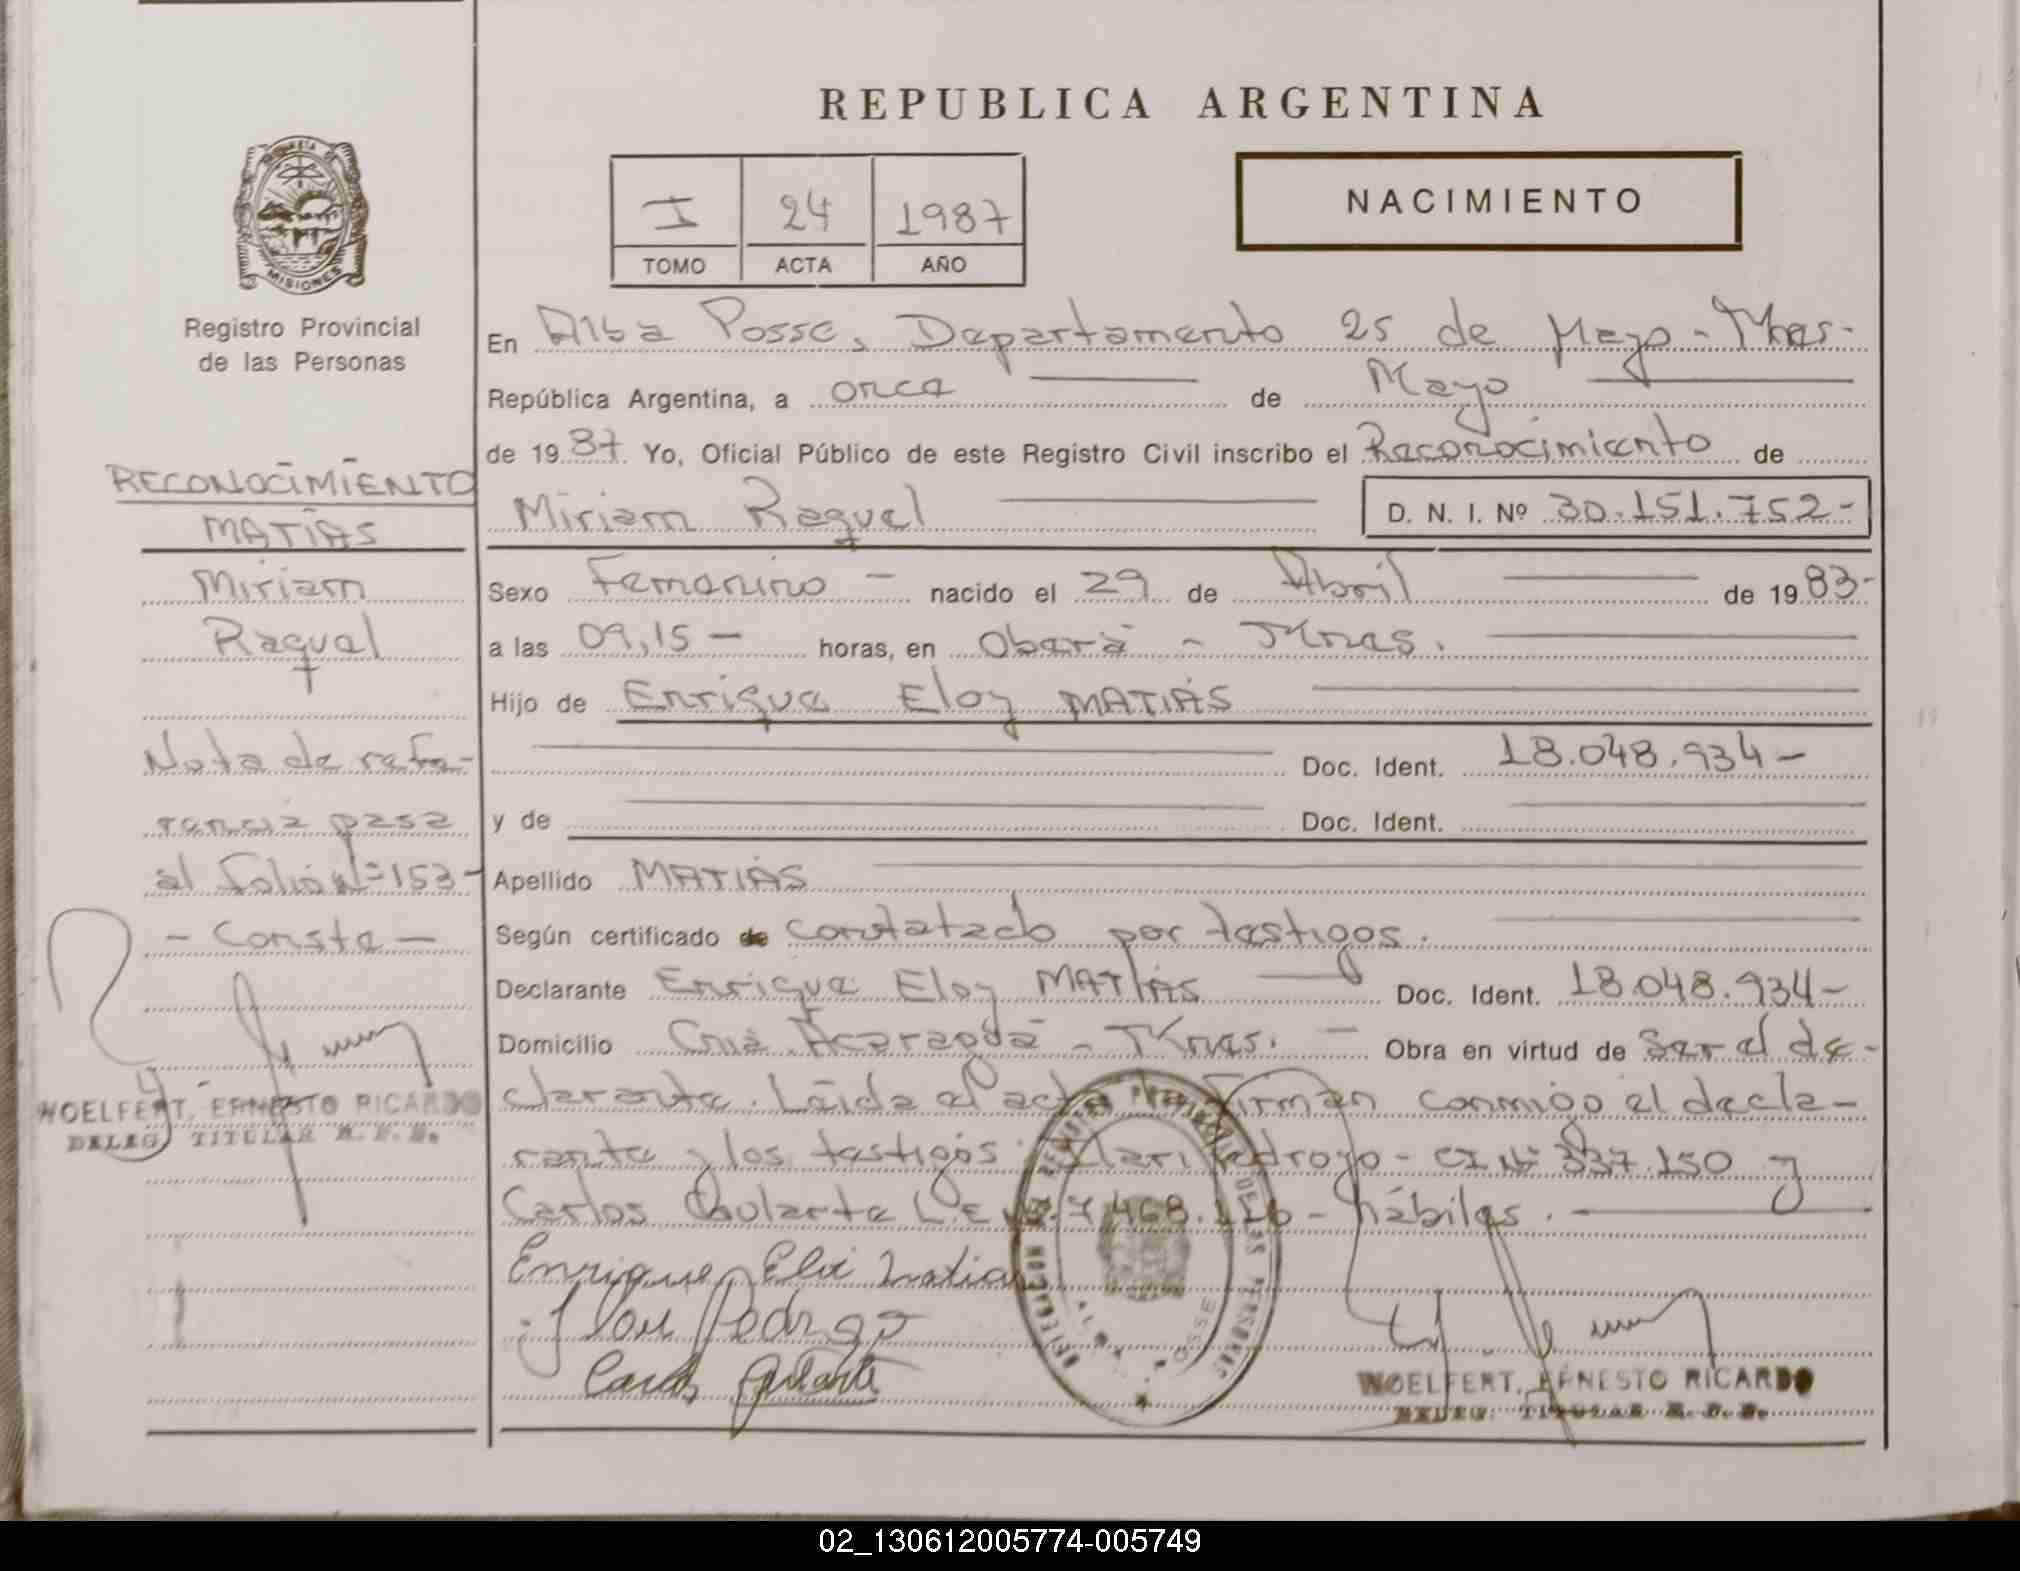 REPUBLICA ARGENTINA
NACIMIENTO
I 24 1987
TOMO ACTA AÑO
MISIONES
Registro Provincial
de las Personas
RECONOCIMIENTO
MATIAS
Miriam
Raquel
Nota de refe-
rencia pasa
al folio Nº 153-
- Consta -
WOELFERT, ERNESTO RICARDO
DELEG. TITULAR R. P. P.
En Alba Posse, Departamento 25 de Mayo - Mnes-
República Argentina, a once de Mayo
de 1987. Yo, Oficial Público de este Registro Civil inscribo el Reconocimiento de
Miriam Raquel D. N. I. Nº 30.151.752-
Sexo Femenino - nacido el 29 de Abril de 1983-
a las 09,15 - horas, en Oberá - Mnes.
Hijo de Enrique Eloy MATIAS
Doc. Ident. 18.048.934-
y de Doc. Ident.
Apellido MATIAS
Según certificado de constatado por testigos.
Declarante Enrique Eloy MATIAS Doc. Ident. 18.048.934-
Domicilio Cnia. Acaraguá - Mnes. - Obra en virtud de Ser el de-
clarante. Leída el acta, Firman conmigo el decla-
rante y los testigos: Pedrozo - CI Nº 337.150 y
Carlos L.E. Nº 7.468.116 - hábiles.
Enrique Eloi Matias
Pedrozo
Carlos
DELEGACION REGISTRO PROVINCIAL DE LAS PERSONAS
ALBA POSSE
WOELFERT, ERNESTO RICARDO
DELEG. TITULAR R. P. P.
02_130612005774-005749